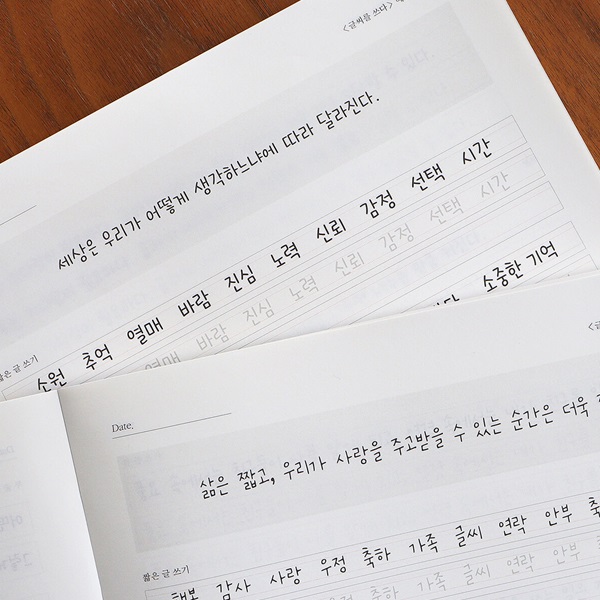 <글씨를 쓰다>
세상은 우리가 어떻게 생각하느냐에 따라 달라진다.
짧은 글 쓰기
소원 추억 열매 바람 진심 노력 신뢰 감정 선택 시간
열매 바람 진심 노력 신뢰 감정 선택 시간
소중한 기억
Date.
삶은 짧고, 우리가 사랑을 주고받을 수 있는 순간은 더욱
짧은 글 쓰기
행복 감사 사랑 우정 축하 가족 글씨 연락 안부
우정 축하 가족 글씨 연락 안부